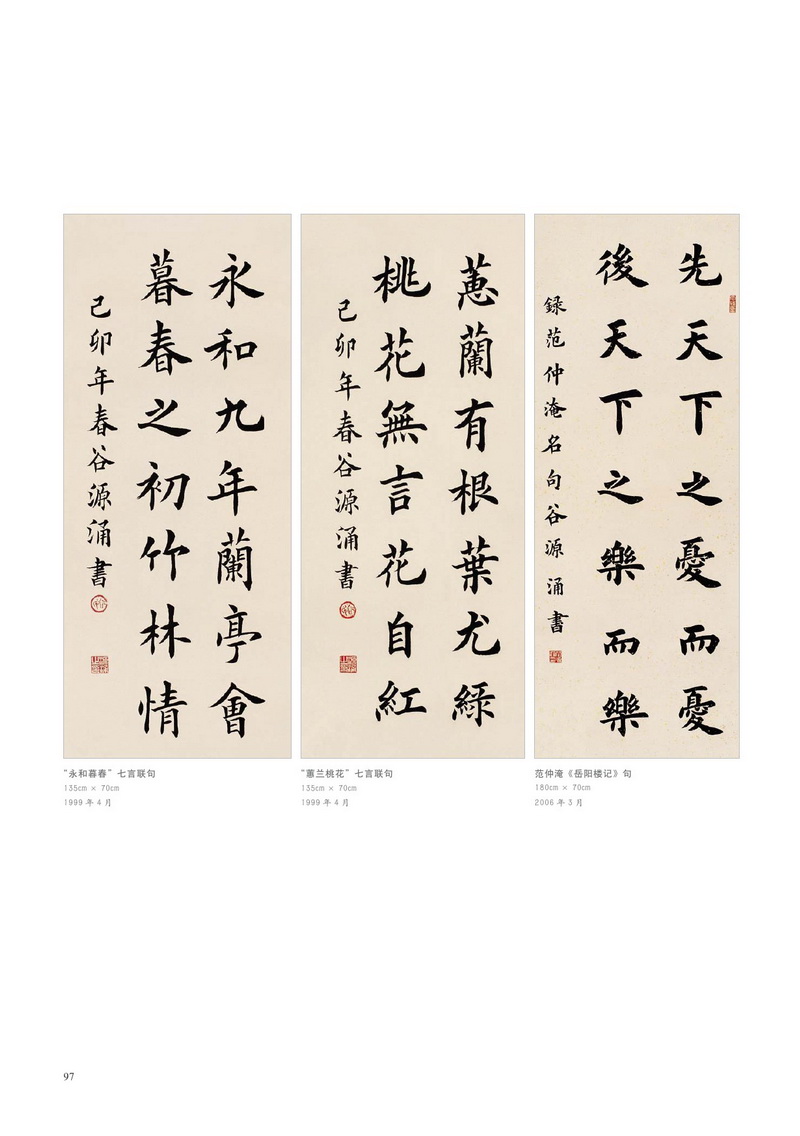 永和九年蘭亭會
暮春之初竹林情
己卯年春谷源涌書
蕙蘭有根葉尤綠
桃花無言花自紅
己卯年春谷源涌書
先天下之憂而憂
後天下之樂而樂
録范仲淹名句谷源涌書
“永和暮春”七言联句
135cm × 70cm
1999 年 4 月
“蕙兰桃花”七言联句
135cm × 70cm
1999 年 4 月
范仲淹《岳阳楼记》句
180cm × 70cm
2006 年 3 月
97